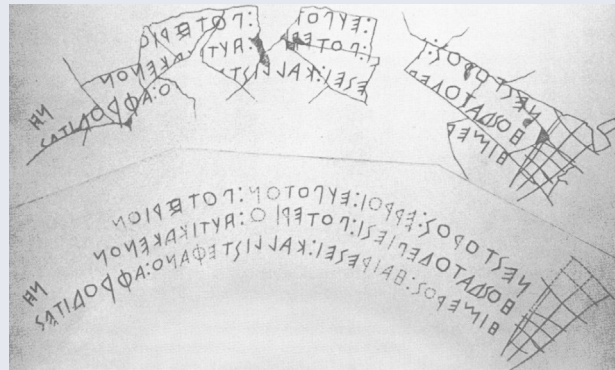 ΝΕΣΤΟΡΟΣ: Ι:ΕΥΠΟΤ :ΠΟΤΕΡΙΟ
ΗΟΣΔΑΤΟΔΕ :ΠΟΤΕΡΙ :ΑΥΤΙ ΚΑΚΕΝΟΝ
ΗΙΜΕΡ ΕΣΕΙ:ΚΑΛΛΙΣΤ Ο:ΑΦΡΟΔΙΤΕΣ
ΝΕΣΤΟΡΟΣ:ΕΡΡΟΙ:ΕΥΠΟΤΟΝ:ΠΟΤΕΡΙΟΝ
ΗΟΣΔΑΤΟΔΕΠΙΕΣΙ:ΠΟΤΕΡΙΟ:ΑΥΤΙΚΑΚΕΝΟΝ
ΗΙΜΕΡΟΣ:ΗΑΙΡΕΣΕΙ:ΚΑΛΛΙΣΤΕΦΑΝΟ:ΑΦΡΟΔΙΤΕΣ